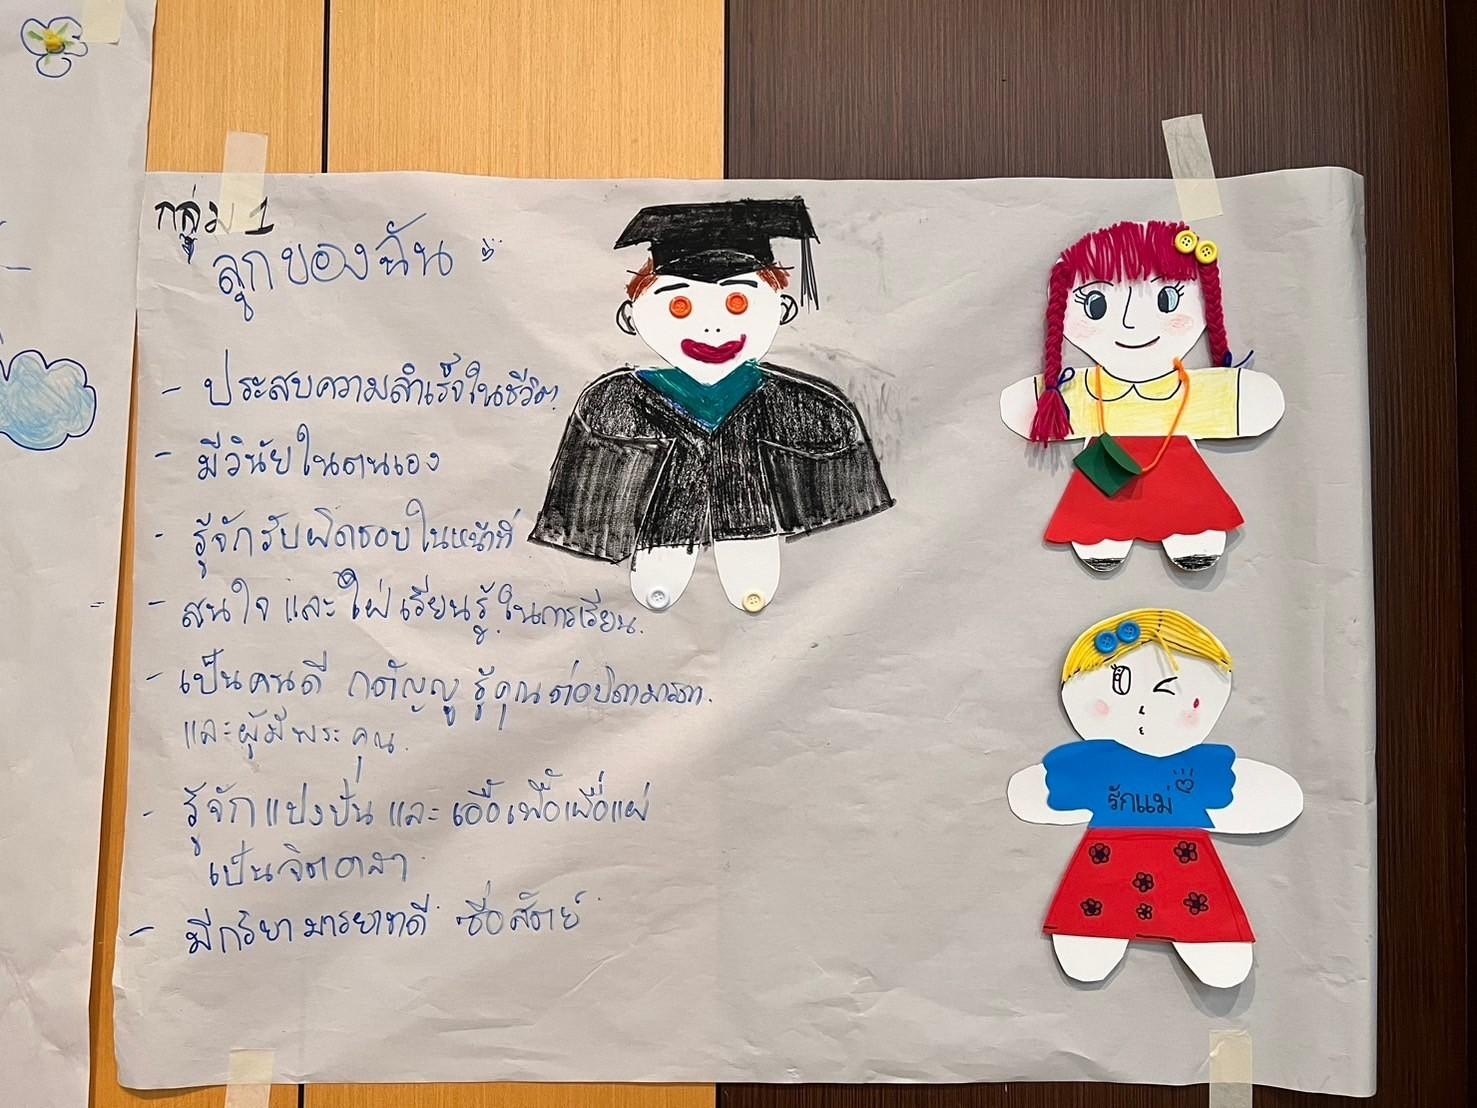 กลุ่ม 1
ลูกของฉัน
- ประสบความสำเร็จในชีวิต
- มีวินัยในตนเอง
- รู้จักรับผิดชอบในหน้าที่
- สนใจ และใฝ่เรียนรู้ในการเรียน
- เป็นคนดี กตัญญู รู้คุณต่อบิดามารดา
และผู้มีพระคุณ
- รู้จักแบ่งปัน และ เอื้อเฟื้อเผื่อแผ่
เป็นจิตอาสา
- มีกริยามารยาทดี ซื่อสัตย์
รักแม่